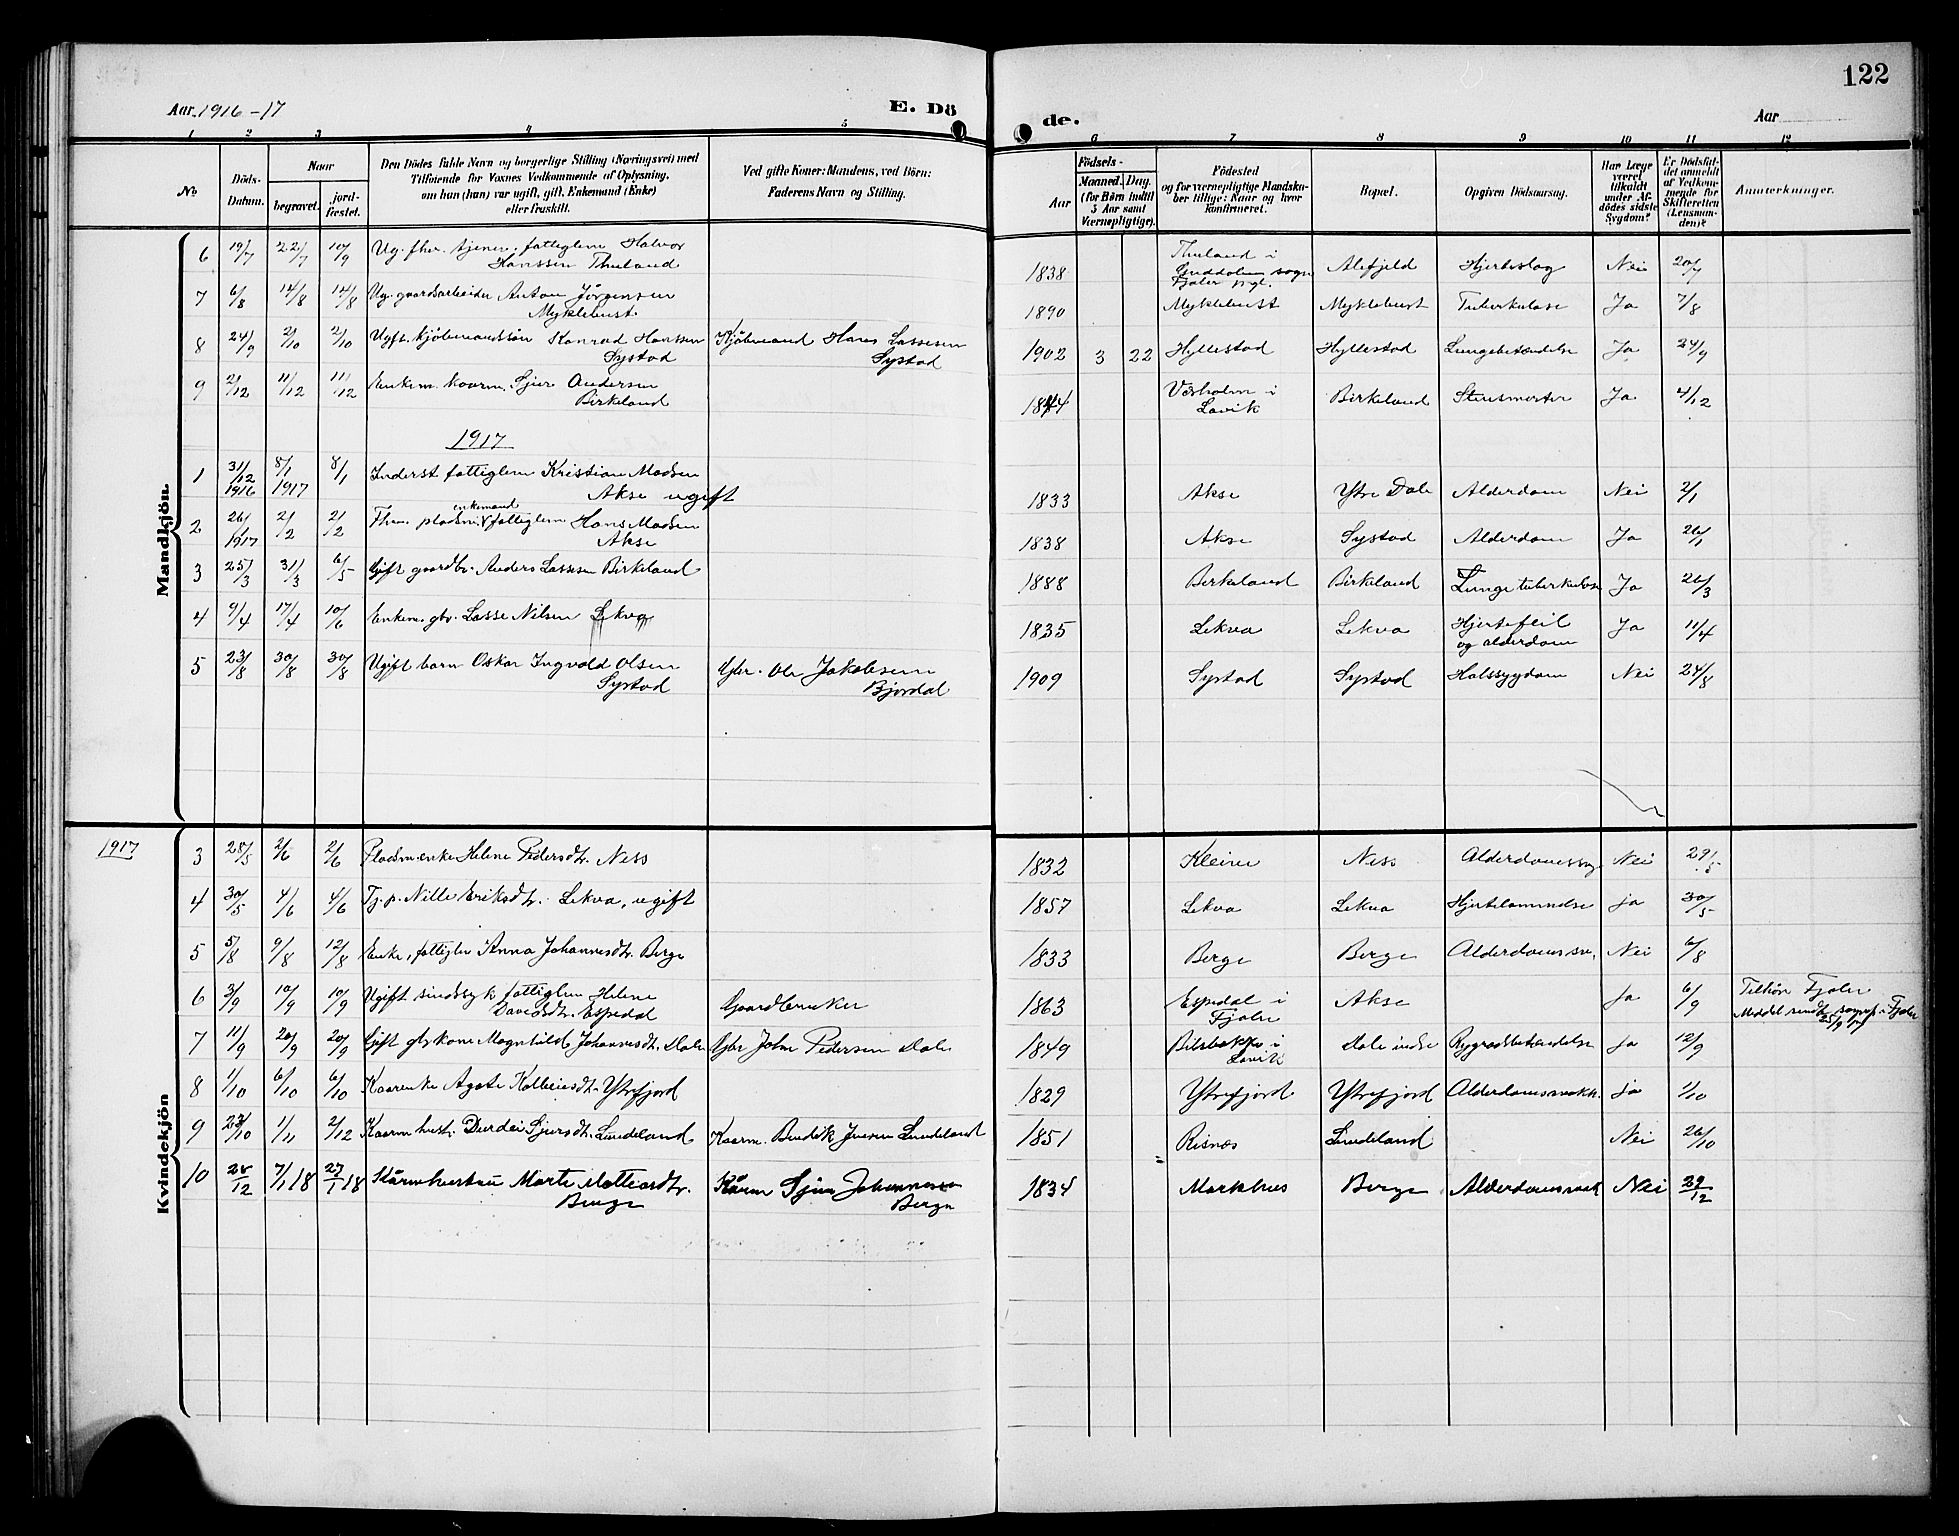 122
Aar 1916-17 E. Dö de. Aar
1 2 3 4 5 6 7 8 9 10 11 12
No
Döds-Datum.
Naar
begravet.
jordfæstet.
Den Dödes fulde Navn og borgerlige Stilling (Næringsvei) med
Tilföiende for Voxnes Vedkommende af Oplysning,
om hun (han) var ugift, gift, Enkemand (Enke)
eller fraskilt.
Ved gifte Koner: Mandens, ved Börn:
Faderens Navn og Stilling.
Födsels-
Aar
Maaned. Dag.
(for Börn indtil
5 Aar samt
Værnepligtige).
Födested
og for værnepligtige Mandska-
ber tillige: Naar og hvor
konfirmeret.
Bopæl.
Opgiven Dödsaarsag.
Har Læge
været
tilkaldt
under Af-
dödes sidste
Sygdom?
Er Dödsfal-
det anmeldt
af Vedkom-
mende for
Skifteretten
(Lensman-
den)?
Anmærkninger.
Mandkjön.
6 19/7 22/7 10/9 Ug. fhv. tjener, fattiglem Halvor
Hanssen Thueland 1838 Thueland i
sogn
Fjaler prgl. Alefjeld Hjerteslag Nei 20/7
7 6/8 14/8 14/8 Ug. gaardsarbeider Anton Jörgensen
Myklebust 1890 Myklebust Myklebust Tuberkulose Ja 7/8
8 24/9 2/10 2/10 Ugift kjöbmandssön Konrad Hanssen
Systad Kjöbmand Hans Lassesen
Systad 1902 3 22 Hyllestad Hyllestad Lungebetændelse Ja 24/9
9 2/12 11/12 11/12 Enkem. kaarm. Sjur Andersen
Birkeland 1844 Værholm i
Lavik Birkeland Stensmerter Ja 4/12
1917
1 31/12 1916 8/1 1917 8/1 Inderst fattiglem Kristian Madsen
Akse ugift 1833 Akse Ytre Dale Alderdom Nei 2/1
2 26/1 1917 2/2 2/2 Fhv. pladsm. enkemand fattiglem Hans Madsen
Akse 1838 Akse Systad Alderdom Ja 26/1
3 25/3 31/3 6/5 Gift gaardbr. Anders Lassesen Birkeland 1888 Birkeland Birkeland Lungetuberkulose Ja 26/3
4 9/4 17/4 10/6 Enkem. gbr. Lasse Nilsen Lekva 1835 Lekva Lekva Hjertefeil
og alderdom Ja 11/4
5 23/8 30/8 30/8 Ugift barn Oskar Ingvald Olsen
Systad Gbr. Ole Jakobsen
Bjordal 1909 Systad Systad Halssygdom Nei 24/8
Kvindekjön
1917
3 28/5 2/6 2/6 Pladsm.enke Helene Pedersdtr. Ness 1832 Kleiva Ness Alderdomssv. Nei 29/5
4 30/5 4/6 4/6 Tj.p. Nille Eriksdtr. Lekva, ugift 1857 Lekva Lekva Hjertelammelse ja 30/5
5 5/8 9/8 12/8 Enke, fattiglem Anna Johannesdtr. Berge 1833 Berge Berge Alderdomssv. Nei 6/8
6 3/9 10/9 10/9 Ugift sindssyk fattiglem Helene
Davidsdtr. Espedal Gaardbruker 1863 Espedal i
Fjaler Akse Ja 6/9 Tilhör Fjaler
Meddel. sendt sognepr. i Fjaler
25/9 17
7 11/9 20/9 20/9 Gift gbr.kone Magnhild Johannesdtr. Dale Gbr John Pedersen Dale 1849 Bilsbakke i
Lavik Dale indre Rygradsbetændelse Ja 12/9
8 1/10 6/10 6/10 Kaarenke Agate Kolbeinsdtr. Ytrefjord 1829 Ytrefjord Ytrefjord Alderdomssvakh. Ja 1/10
9 23/10 1/11 2/12 Kaarm hustr. Durdei Sjursdtr. Lindeland Kaarm. Bendik Iversen Lindeland 1851 Risnes Lindeland Nei 26/10
10 28/12 7/1 18 27/1 18 Kårmhustru Marte Matteosdtr.
Berge Kårm Sjur Johannesen
Berge 1834 Markhus Berge Alderdomssvak Nei 29/12